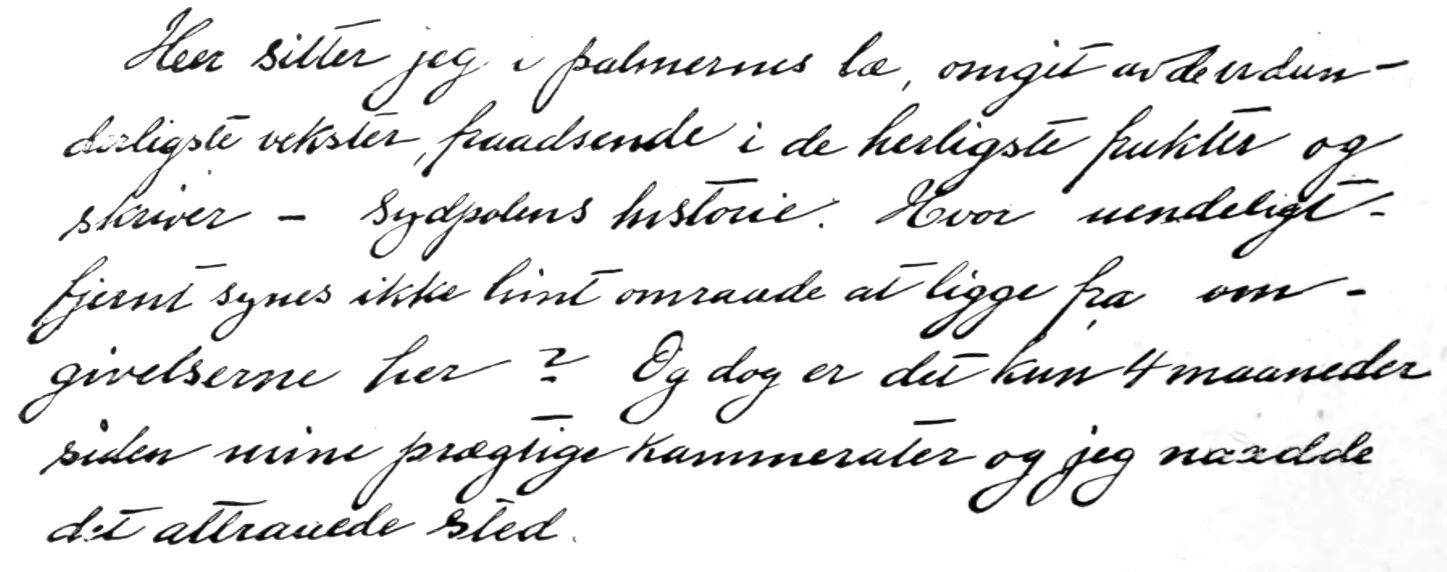 Her sitter jeg i palmernes læ, omgit av de vidun-
derligste vekster, fraadsende i de herligste frukter og
skriver – Sydpolens historie. Hvor uendeligt-
fjernt synes ikke hint omraade at ligge fra om-
givelserne her? Og dog er det kun 4 maaneder
siden mine prægtige kammerater og jeg naadde
det attraaede sted.